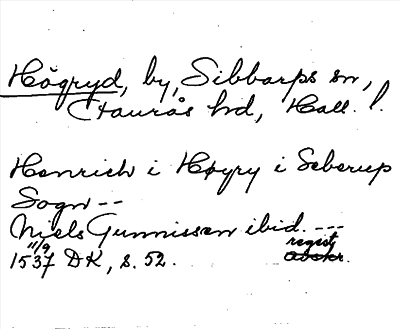 Högryd, by, Sibbarps sn,
Faurås hd, Hall. l.
Henrich i Høyry i Seberup
Sogn --
Niels Gunnissen ibid. ---
11/9 regist
1537 DK, s. 52. avskr.